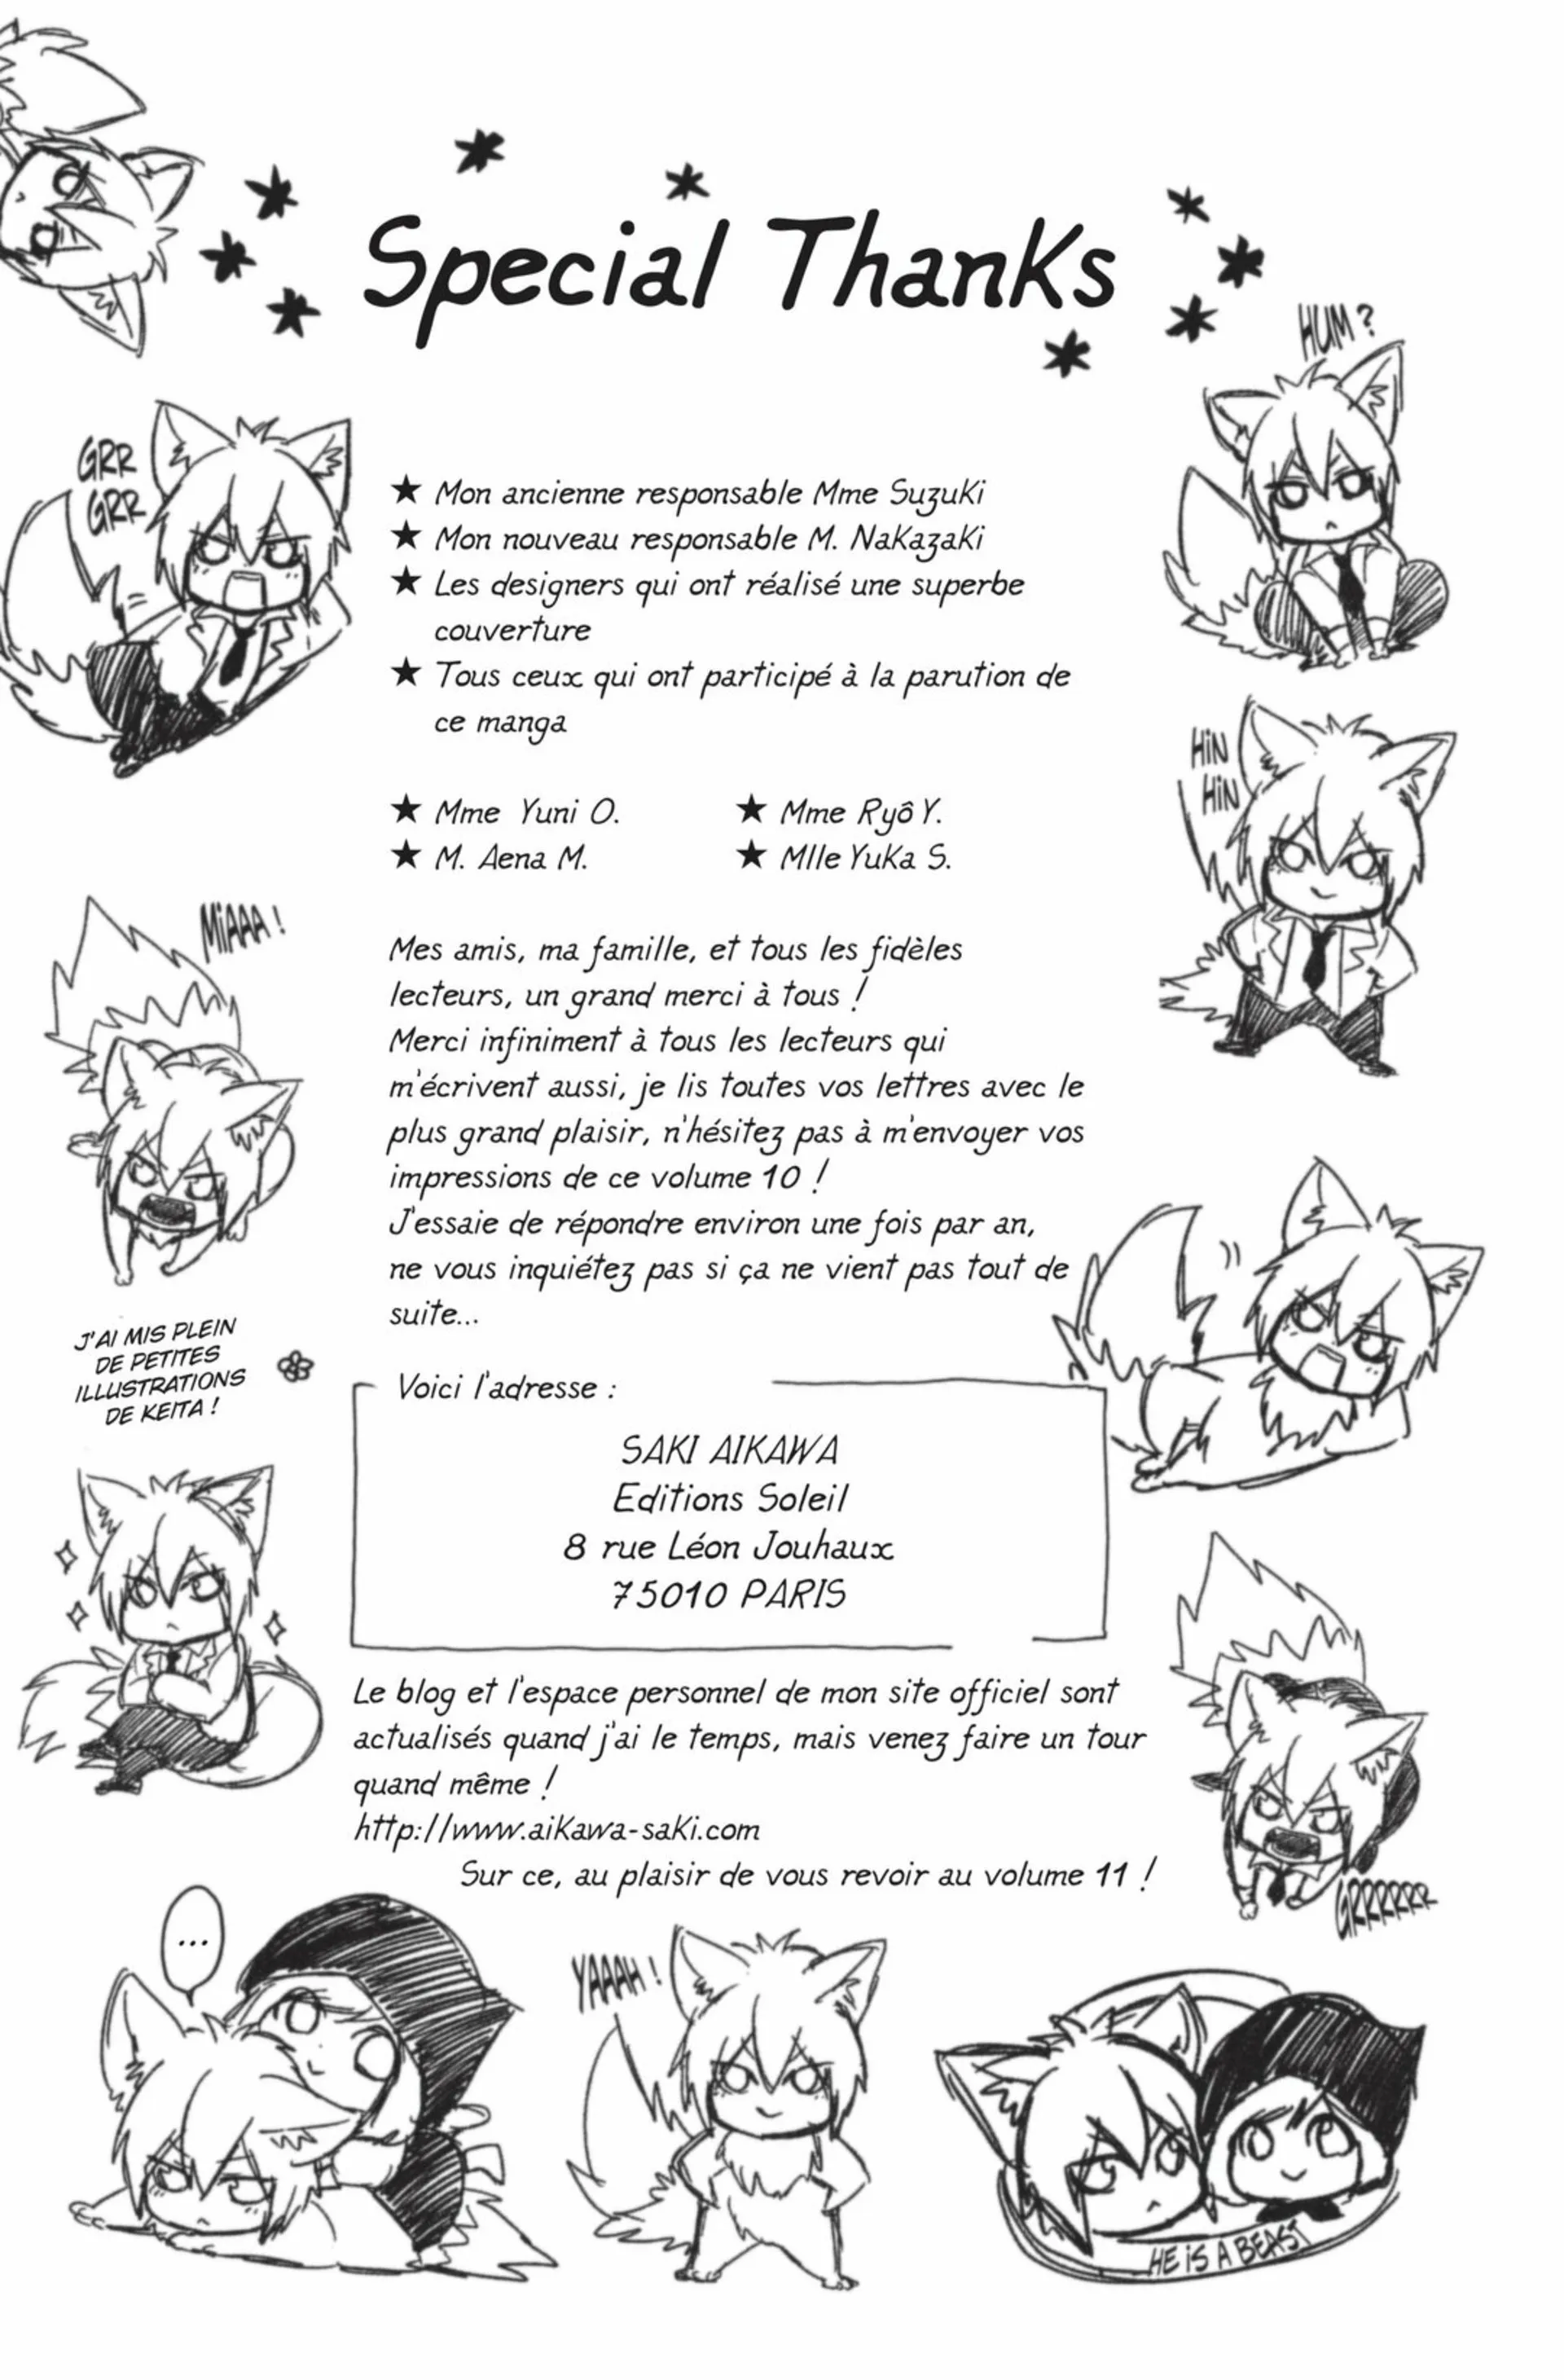 Special Thanks
HUM ?
GRR
GRR
★ Mon ancienne responsable Mme Suzuki
★ Mon nouveau responsable M. Nakazaki
★ Les designers qui ont réalisé une superbe
couverture
★ Tous ceux qui ont participé à la parution de
ce manga
HIN
HIN
★ Mme Yuni O.
★ Mme Ryô Y.
★ M. Aena M.
★ Mlle Yuka S.
MIAAA !
Mes amis, ma famille, et tous les fidèles
lecteurs, un grand merci à tous !
Merci infiniment à tous les lecteurs qui
m'écrivent aussi, je lis toutes vos lettres avec le
plus grand plaisir, n'hésitez pas à m'envoyer vos
impressions de ce volume 10 !
J'essaie de répondre environ une fois par an,
ne vous inquiétez pas si ça ne vient pas tout de
suite...
J'AI MIS PLEIN
DE PETITES
ILLUSTRATIONS
DE KEITA !
Voici l'adresse :
SAKI AIKAWA
Editions Soleil
8 rue Léon Jouhaux
75010 PARIS
Le blog et l'espace personnel de mon site officiel sont
actualisés quand j'ai le temps, mais venez faire un tour
quand même !
http://www.aikawa-saki.com
Sur ce, au plaisir de vous revoir au volume 11 !
GRRRRRR
...
YAAAH !
HE IS A BEAST